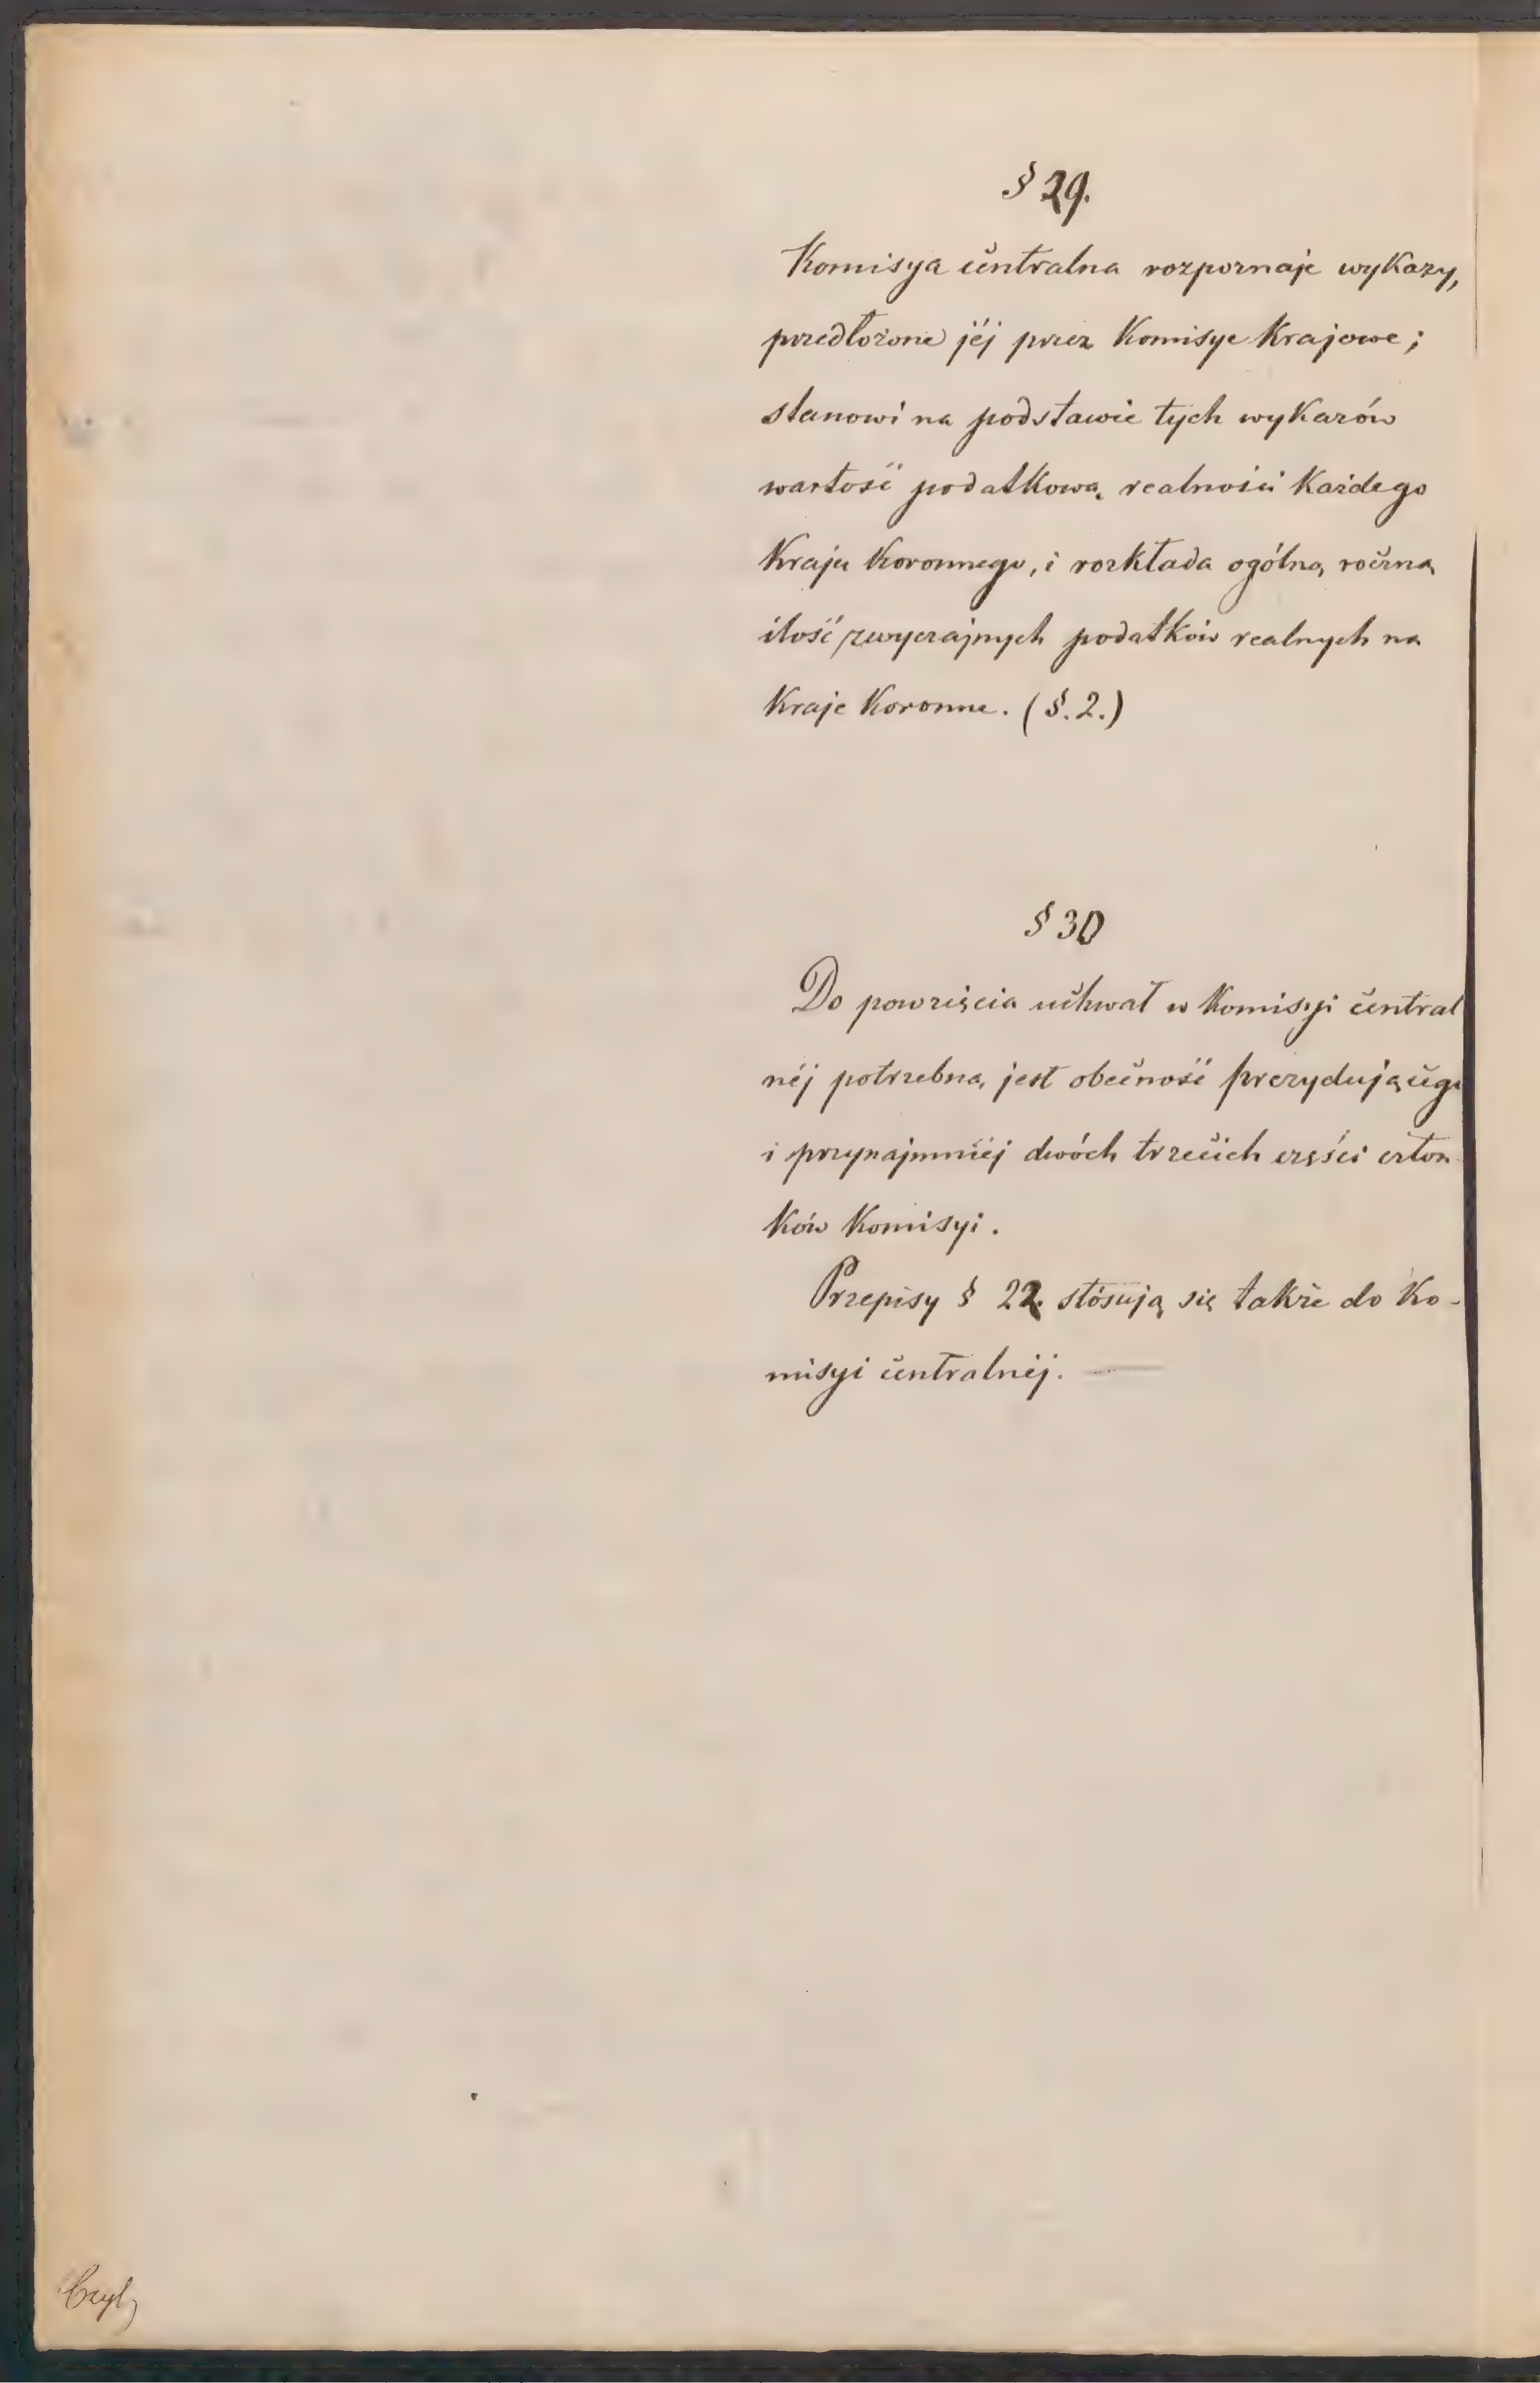 § 29.
Komisya centralna rozpoznaje wykazy,
przedłożone jéj przez Komisye Krajowe;
stanowi na podstawie tych wykazów
wartość podatkową realności Każdego
Kraju Koronnego, i rozkłada ogólną roczną
ilość zwyczajnych podatków realnych na
Kraje Koronne. (§. 2.)
§ 30
Do powzięcia uchwał w Komisyi central
néj potrzebną jest obecność prezydującego
i przynajmniéj dwóch trzecich części człon
ków Komisyi.
Przepisy § 22. stósują się także do Ko-
misyi centralnéj. —